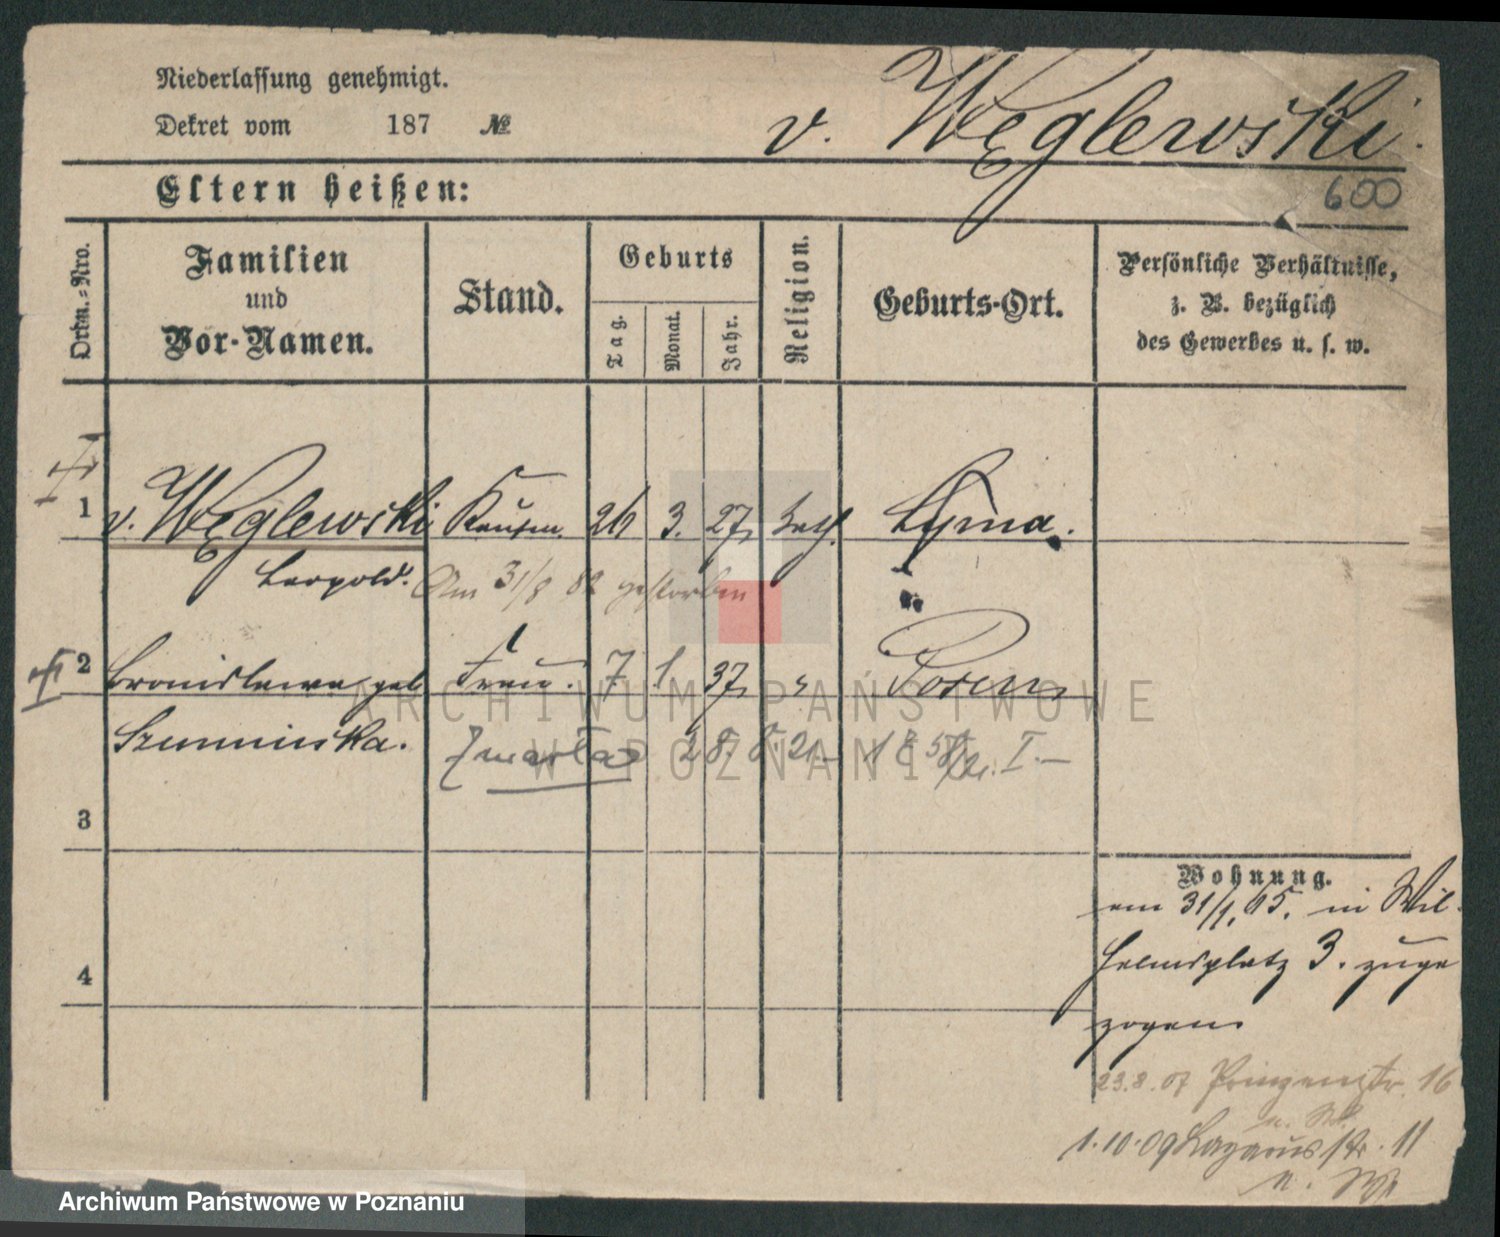 Niederlassung genehmigt.
Dekret vom 187 №
v. Węglewski.
Eltern heißen:
600
Ordn.-Nro.
Familien
und
Vor-Namen.
Stand.
Geburts
Tag.
Monat.
Jahr.
Religion.
Geburts-Ort.
Persönliche Verhältnisse,
z. B. bezüglich
des Gewerbes u. s. w.
1 v. Węglewski Kaufm. 26 3. 27, kath.
Leopold. Am 31/8 82 gestorben
2 Bronislawa geb. Frau. 7 1. 37, Posen
Szumińska.
Zmarła 28. 8. 21
3
4
Wohnung.
am 31/1. 65. in Wil-
helmsplatz 3. zuge
zogen
23.8.07 Prinzenstr. 16
1.10.09 Lazarusstr. 11
ARCHIWUM PAŃSTWOWE
W POZNANIU
Archiwum Państwowe w Poznaniu